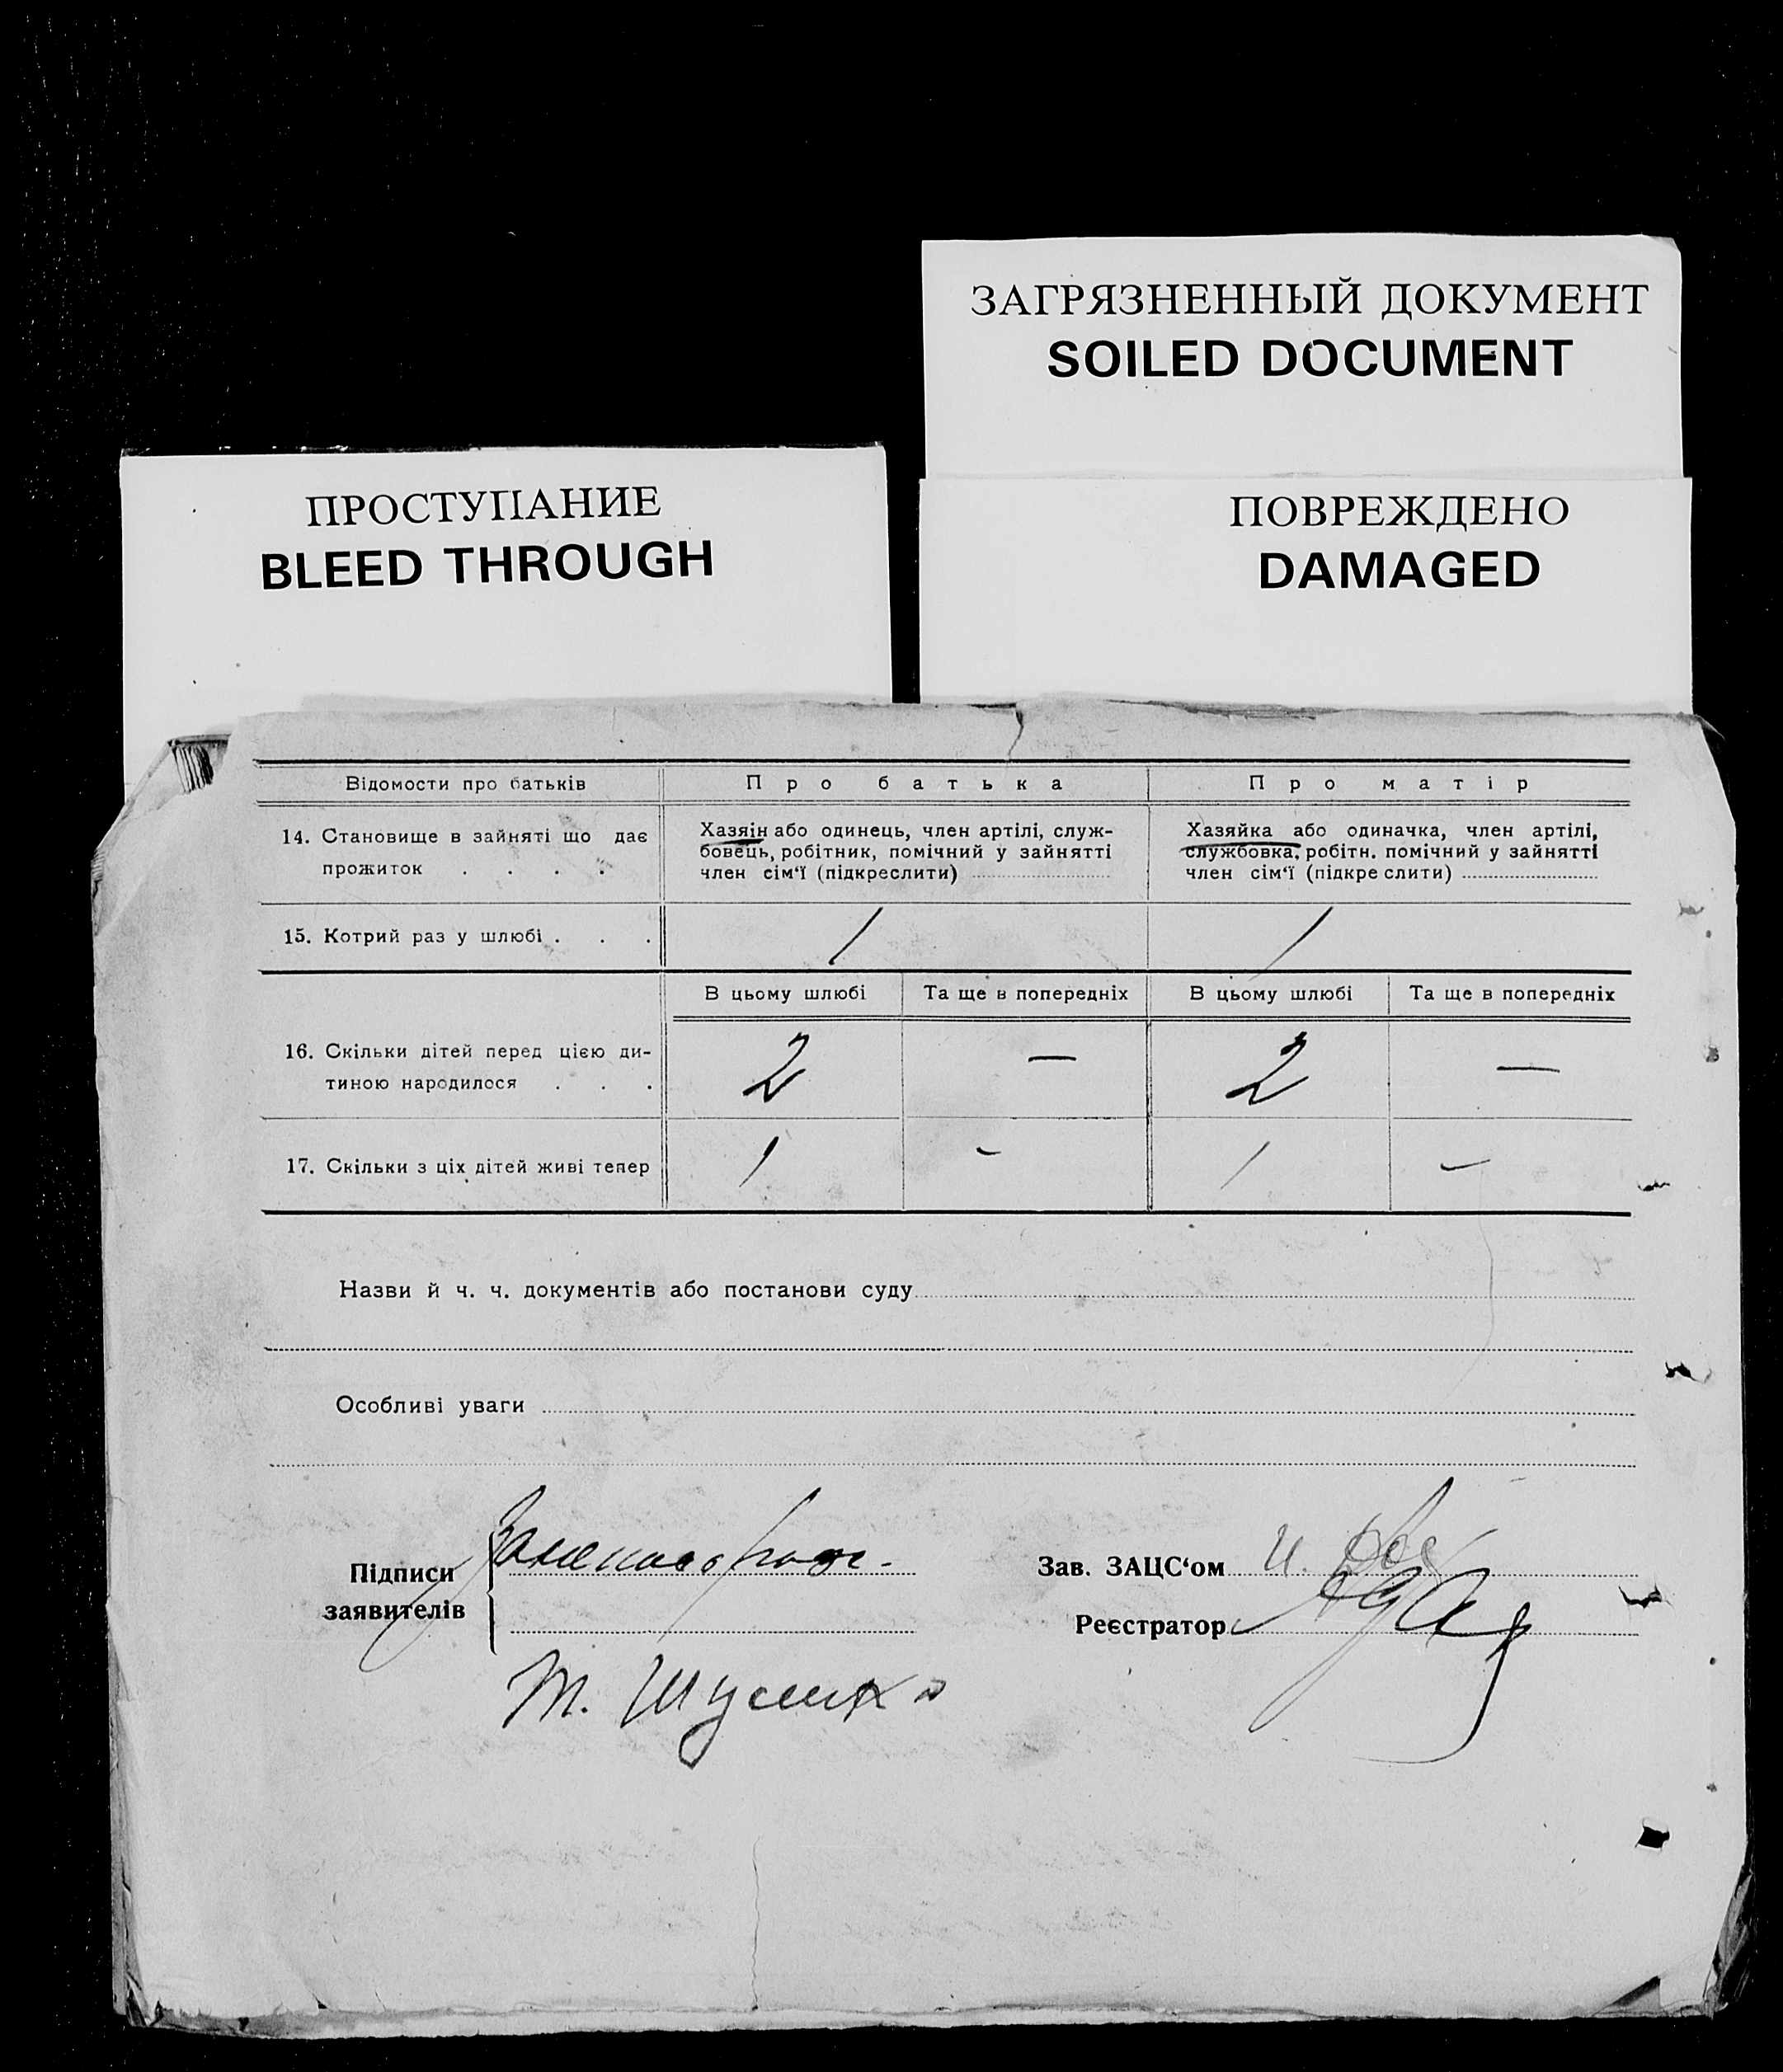 ЗАГРЯЗНЕННЫЙ ДОКУМЕНТ
SOILED DOCUMENT
ПРОСТУПАНИЕ
BLEED THROUGH
ПОВРЕЖДЕНО
DAMAGED
Відомости про батьків Про батька Про матір
14. Становище в зайняті що дає прожиток . . . .
Хазяін або одинець, член артілі, служ-
бовець, робітник, помічний у зайнятті
член сім‘ї (підкреслити)
Хазяйка або одиначка, член артілі,
службовка, робітн. помічний у зайнятті
член сім‘ї (підкреслити)
15. Котрий раз у шлюбі . . . 1 1
В цьому шлюбі Та ще в попередніх В цьому шлюбі Та ще в попередніх
16. Скільки дітей перед цією ди-
тиною народилося . . . 2 — 2 —
17. Скільки з ціх дітей живі тепер 1 - 1 -
Назви й ч. ч. документів або постанови суду
Особливі уваги
Підписи
заявителів
Зав. ЗАЦС‘ом И.
Реєстратор
Т.